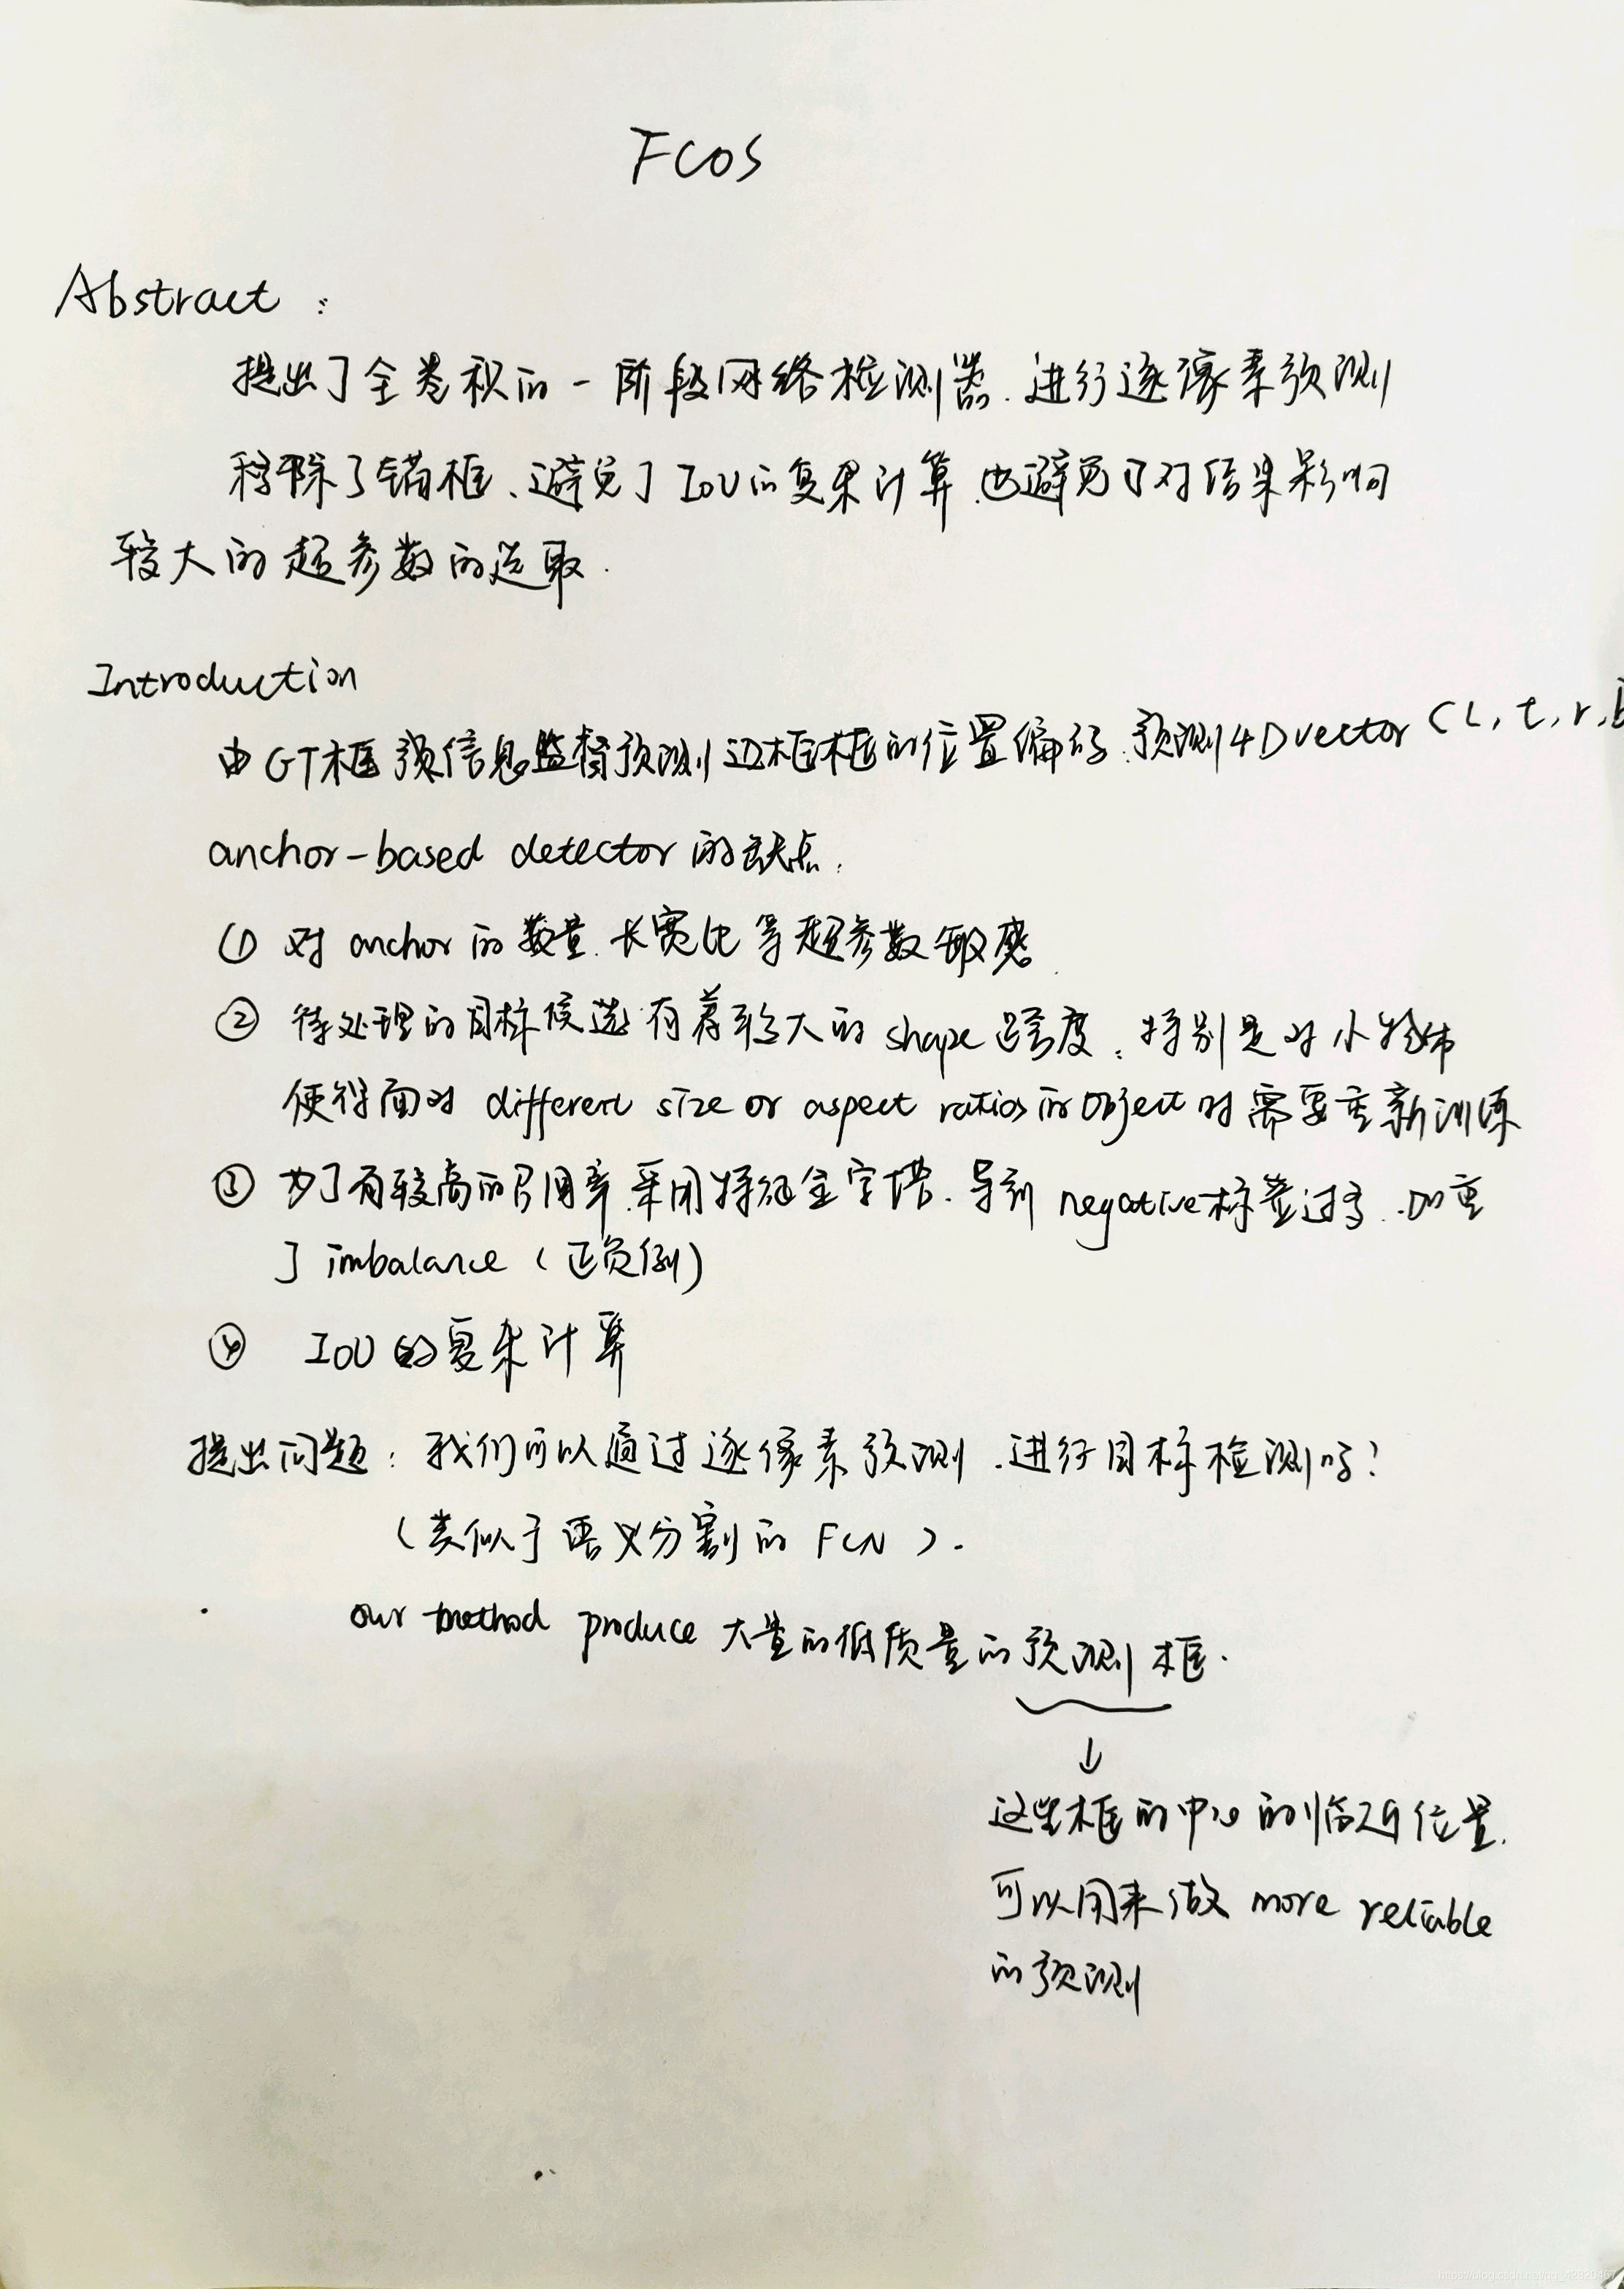 FCOS
Abstract :
提出了全卷积的一阶段网络检测器.进行逐像素预测
移除了锚框、避免了IoU的复杂计算.也避免了对结果影响
较大的超参数的选取.
Introduction
由GT框预信息监督预测边框框的位置编码.预测4D vector (l, t, r, b
anchor-based detector的缺点.
① 对anchor的数量.长宽比等超参数敏感.
② 待处理的目标候选有着较大的shape跨度,特别是对小物体
使得面对different size or aspect ratios in object时需要重新训练
③ 为了有较高的召回率.采用特征金字塔.导致negative标签过多.加重
了imbalance(正负例)
④ IoU的复杂计算
提出问题:我们可以通过逐像素预测.进行目标检测吗?
(类似于语义分割的FCN).
our method produce大量的低质量的预测框.
↓
这些框的中心的临近位置.
可以用来做more reliable
的预测